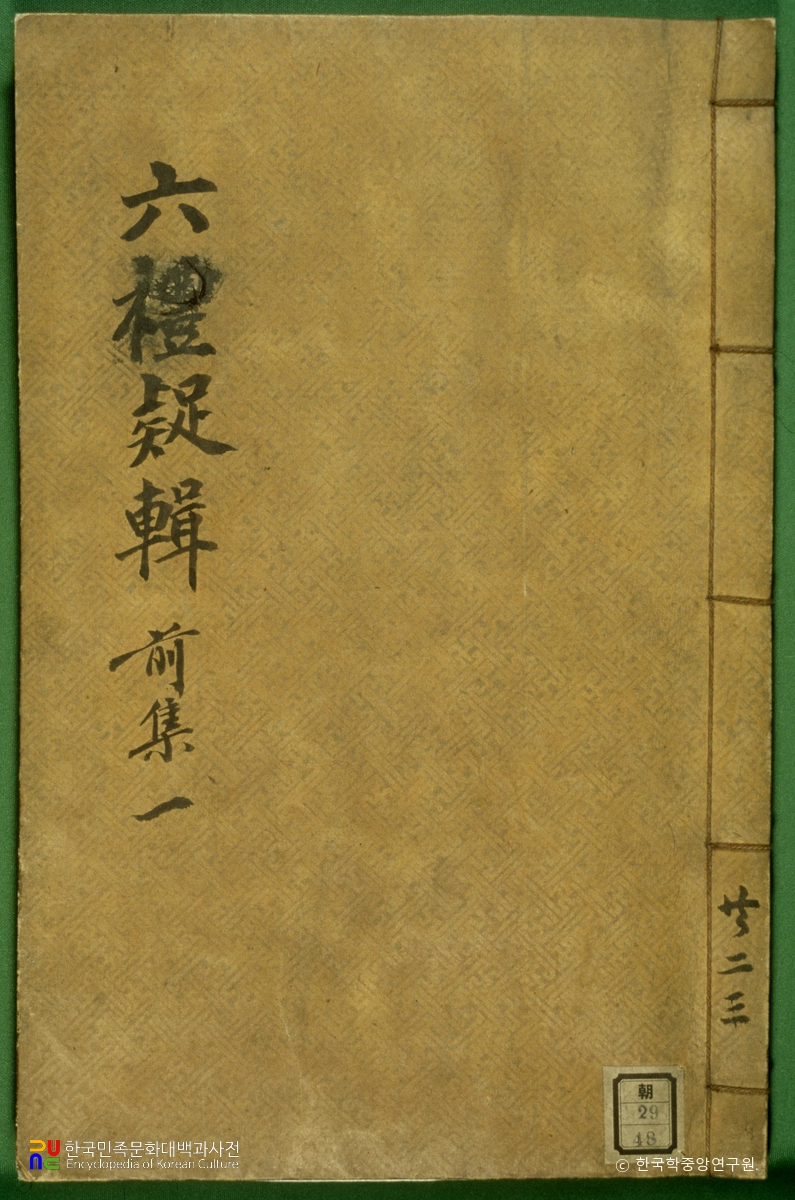 六禮疑輯 前集 一
共二三
朝
29
48
한국민족문화대백과사전
Encyclopedia of Korean Culture
© 한국학중앙연구원.